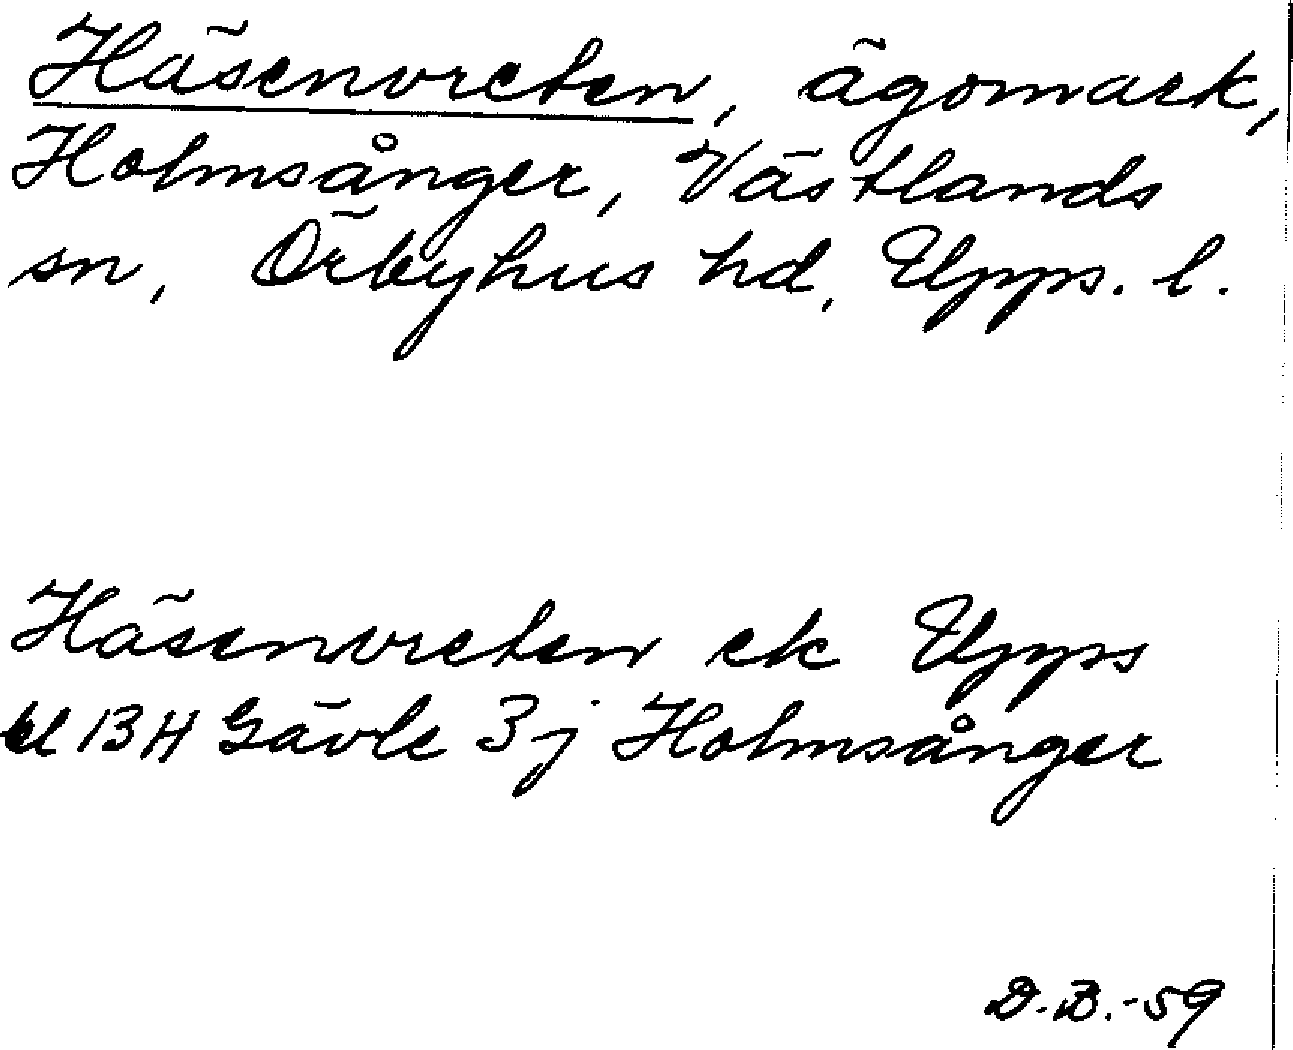 Häsenvreten, ägomark,
Holmsånger, Västlands
sn, Örbyhus hd, Upps. l.
Häsenvreten ek Upps
13H Gävle 3j Holmsånger
D.B.-59